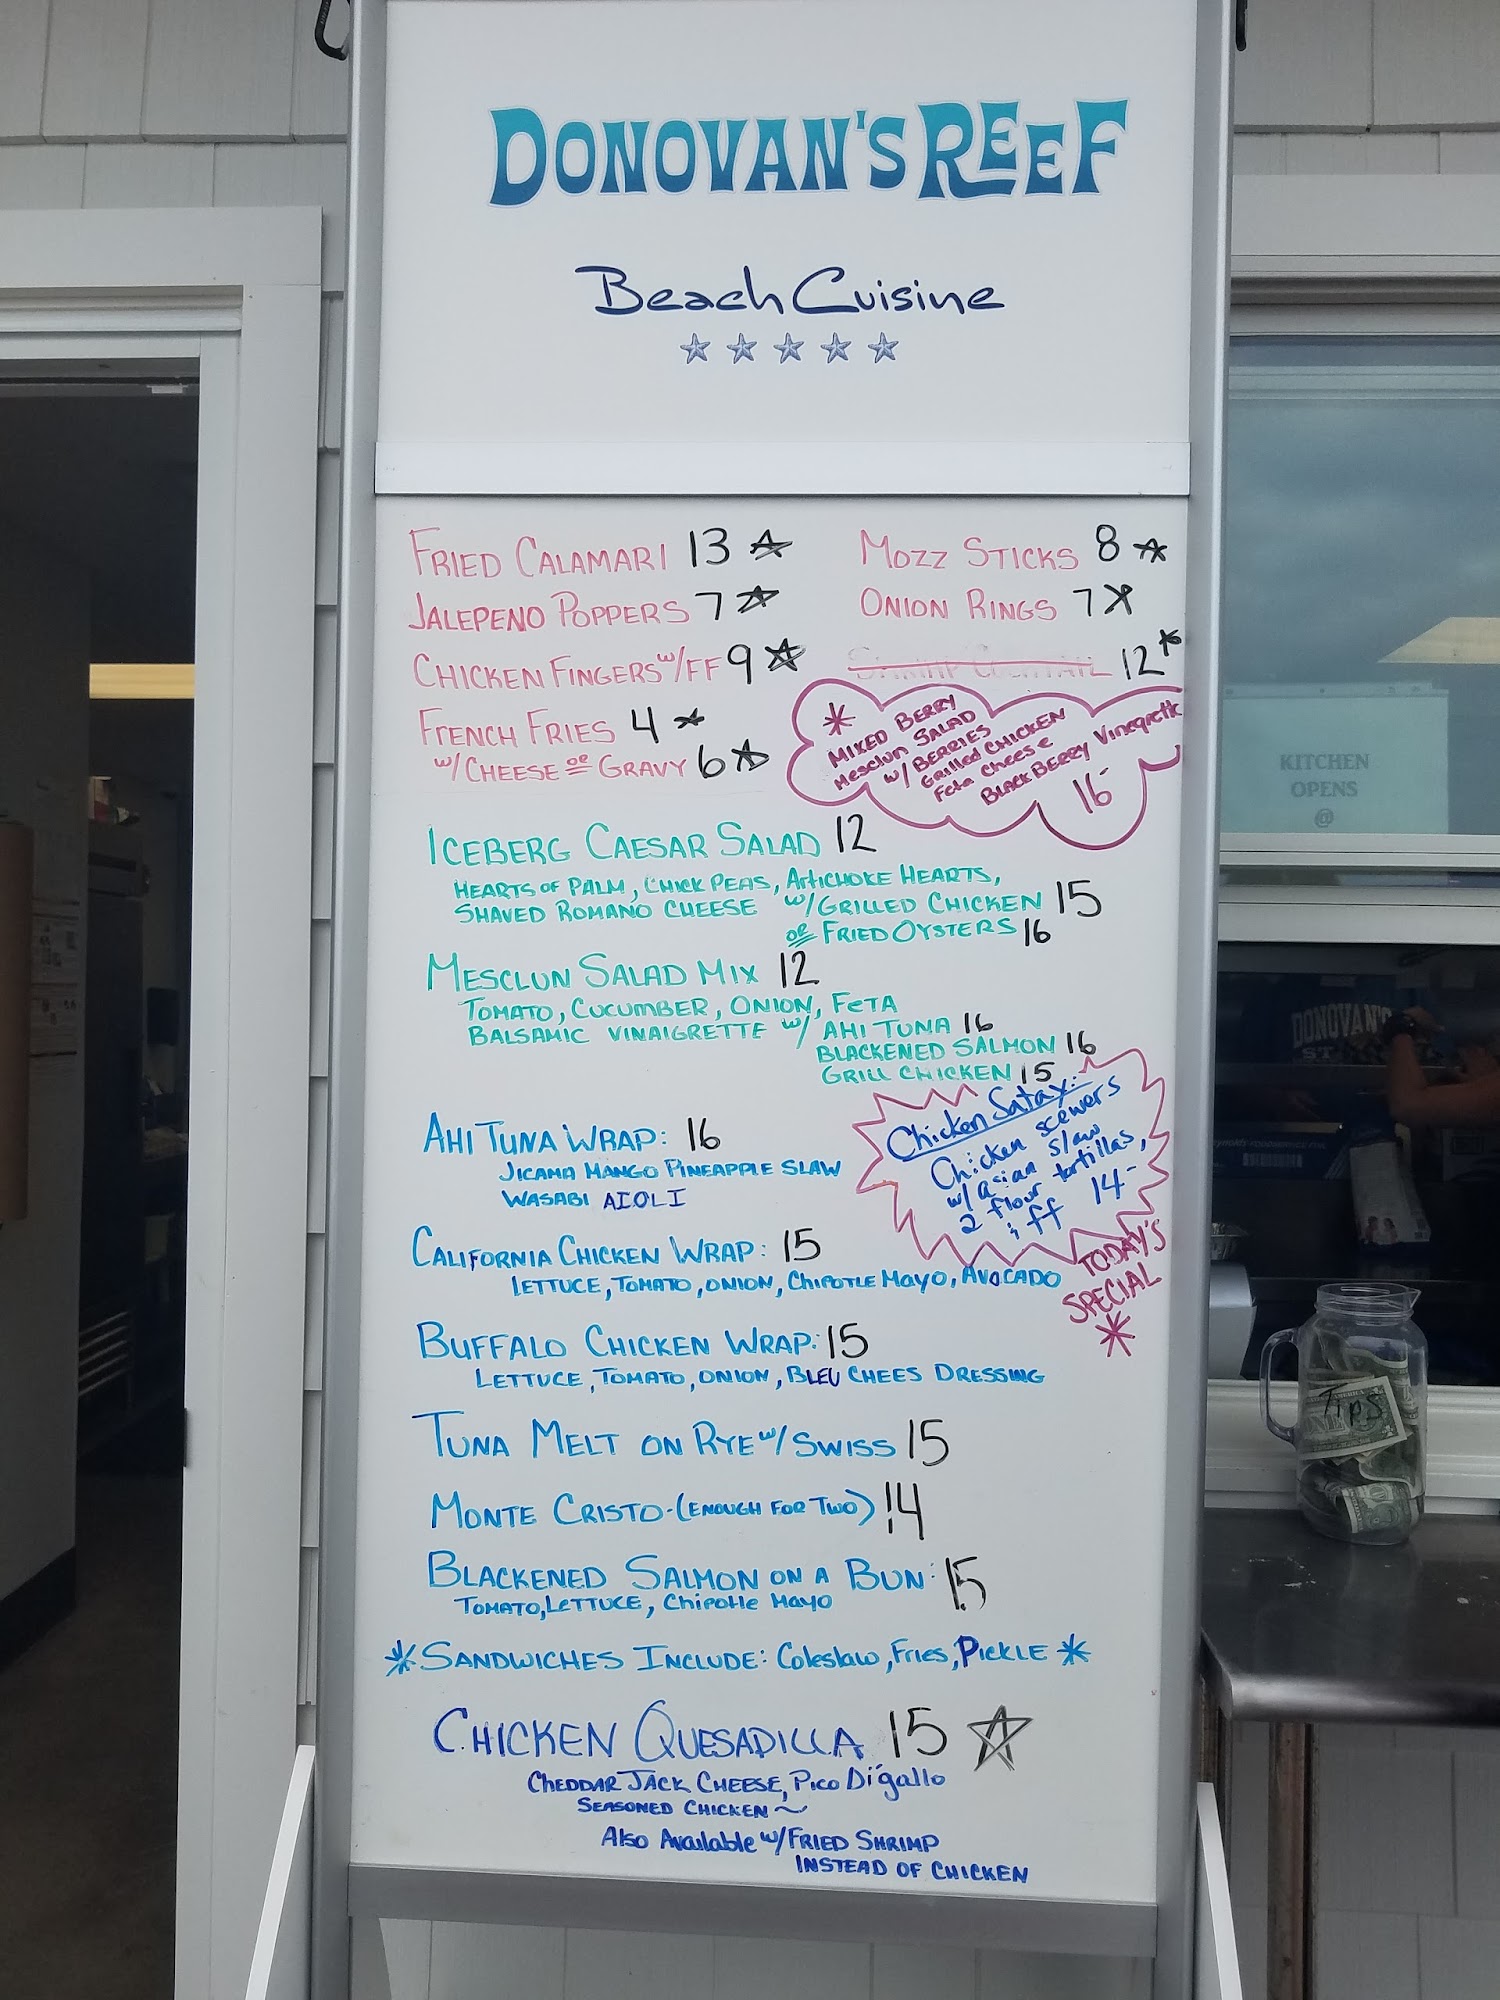 DONOVAN'S REEF
Beach Cuisine
FRIED CALAMARI 13
MOZZ STICKS 8
JALEPENO POPPERS 7
ONION RINGS 7
CHICKEN FINGERS w/FF 9
SHRIMP COCKTAIL 12
FRENCH FRIES 4
w/ CHEESE OR GRAVY 6
* MIXED BERRY
Mesclun SALAD
w/ BERRIES
Grilled CHICKEN
Feta Cheese
BLACKBERRY Vinegrette
16-
ICEBERG CAESAR SALAD 12
HEARTS OF PALM, CHICK PEAS, ArtICHOKE HEARTS,
SHAVED ROMANO CHEESE w/GRILLED CHICKEN 15
OR FRIED OYSTERS 16
MESCLUN SALAD MIX 12
TOMATO, CUCUMBER, ONION, FeTA
BALSAMIC VINAIGRETTE w/ AHI TUNA 16
BLACKENED SALMON 16
GRILL CHICKEN 15
Chicken Satay:
Chicken scewers
w/ asian slaw
2 flour tortillas,
& ff 14-
TODAY'S
SPECIAL
*
AHI TUNA WRAP: 16
JICAMA MANGO PINEAPPLE SLAW
WASABI AIOLI
CALIFORNIA CHICKEN WRAP: 15
LETTUCE, TOMATO, ONION, CHIPOTLE MAYO, AVOCADO
BUFFALO CHICKEN WRAP: 15
LETTUCE, TOMATO, ONION, BLEU CHEES DRESSING
TUNA MELT ON RYE w/ SWISS 15
MONTE CRISTO-(ENOUGH FOR TWO) 14
BLACKENED SALMON ON A BUN: 15
TOMATO, LETTUCE, Chipotle Mayo
*SANDWICHES INCLUDE: Coleslaw, Fries, PICKLE *
CHICKEN QUESADILLA 15
CHEDDAR JACK CHEESE, Pico Di'gallo
SEASONED CHICKEN ~
Also Available w/ FRIED SHRIMP
INSTEAD OF CHICKEN
KITCHEN
OPENS
@
DONOVAN'S
ST
TIPS